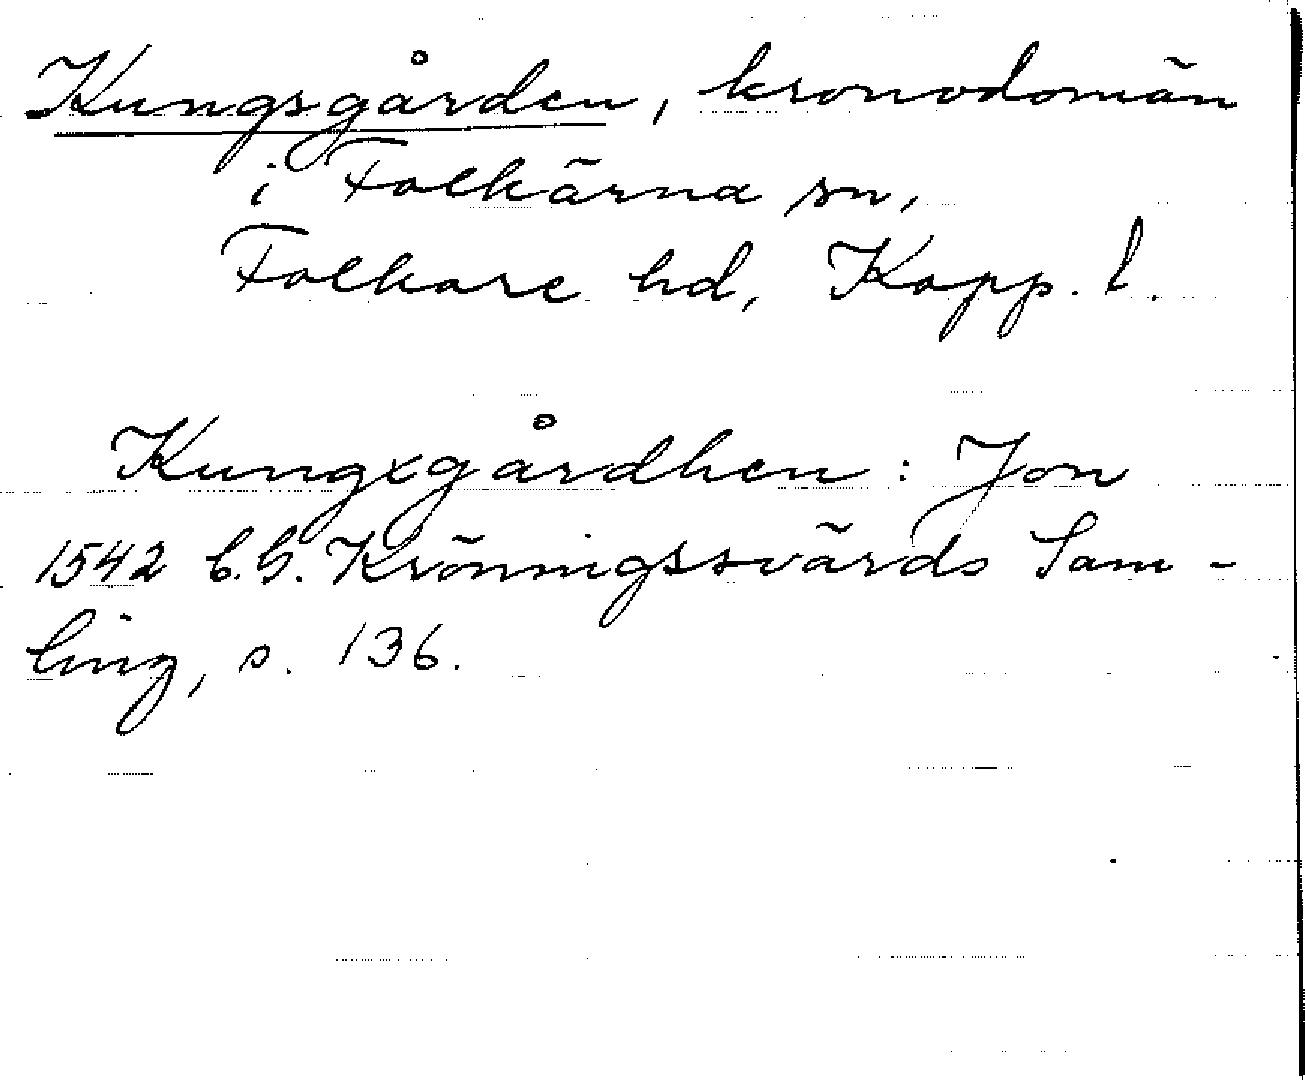 Kungsgården, kronodomän
i Folkärna sn,
Folkare hd, Kopp. l.
Kungxgårdhen: Jon
1542 C.G. Krönnigssvärds Sam-
ling, s. 136.